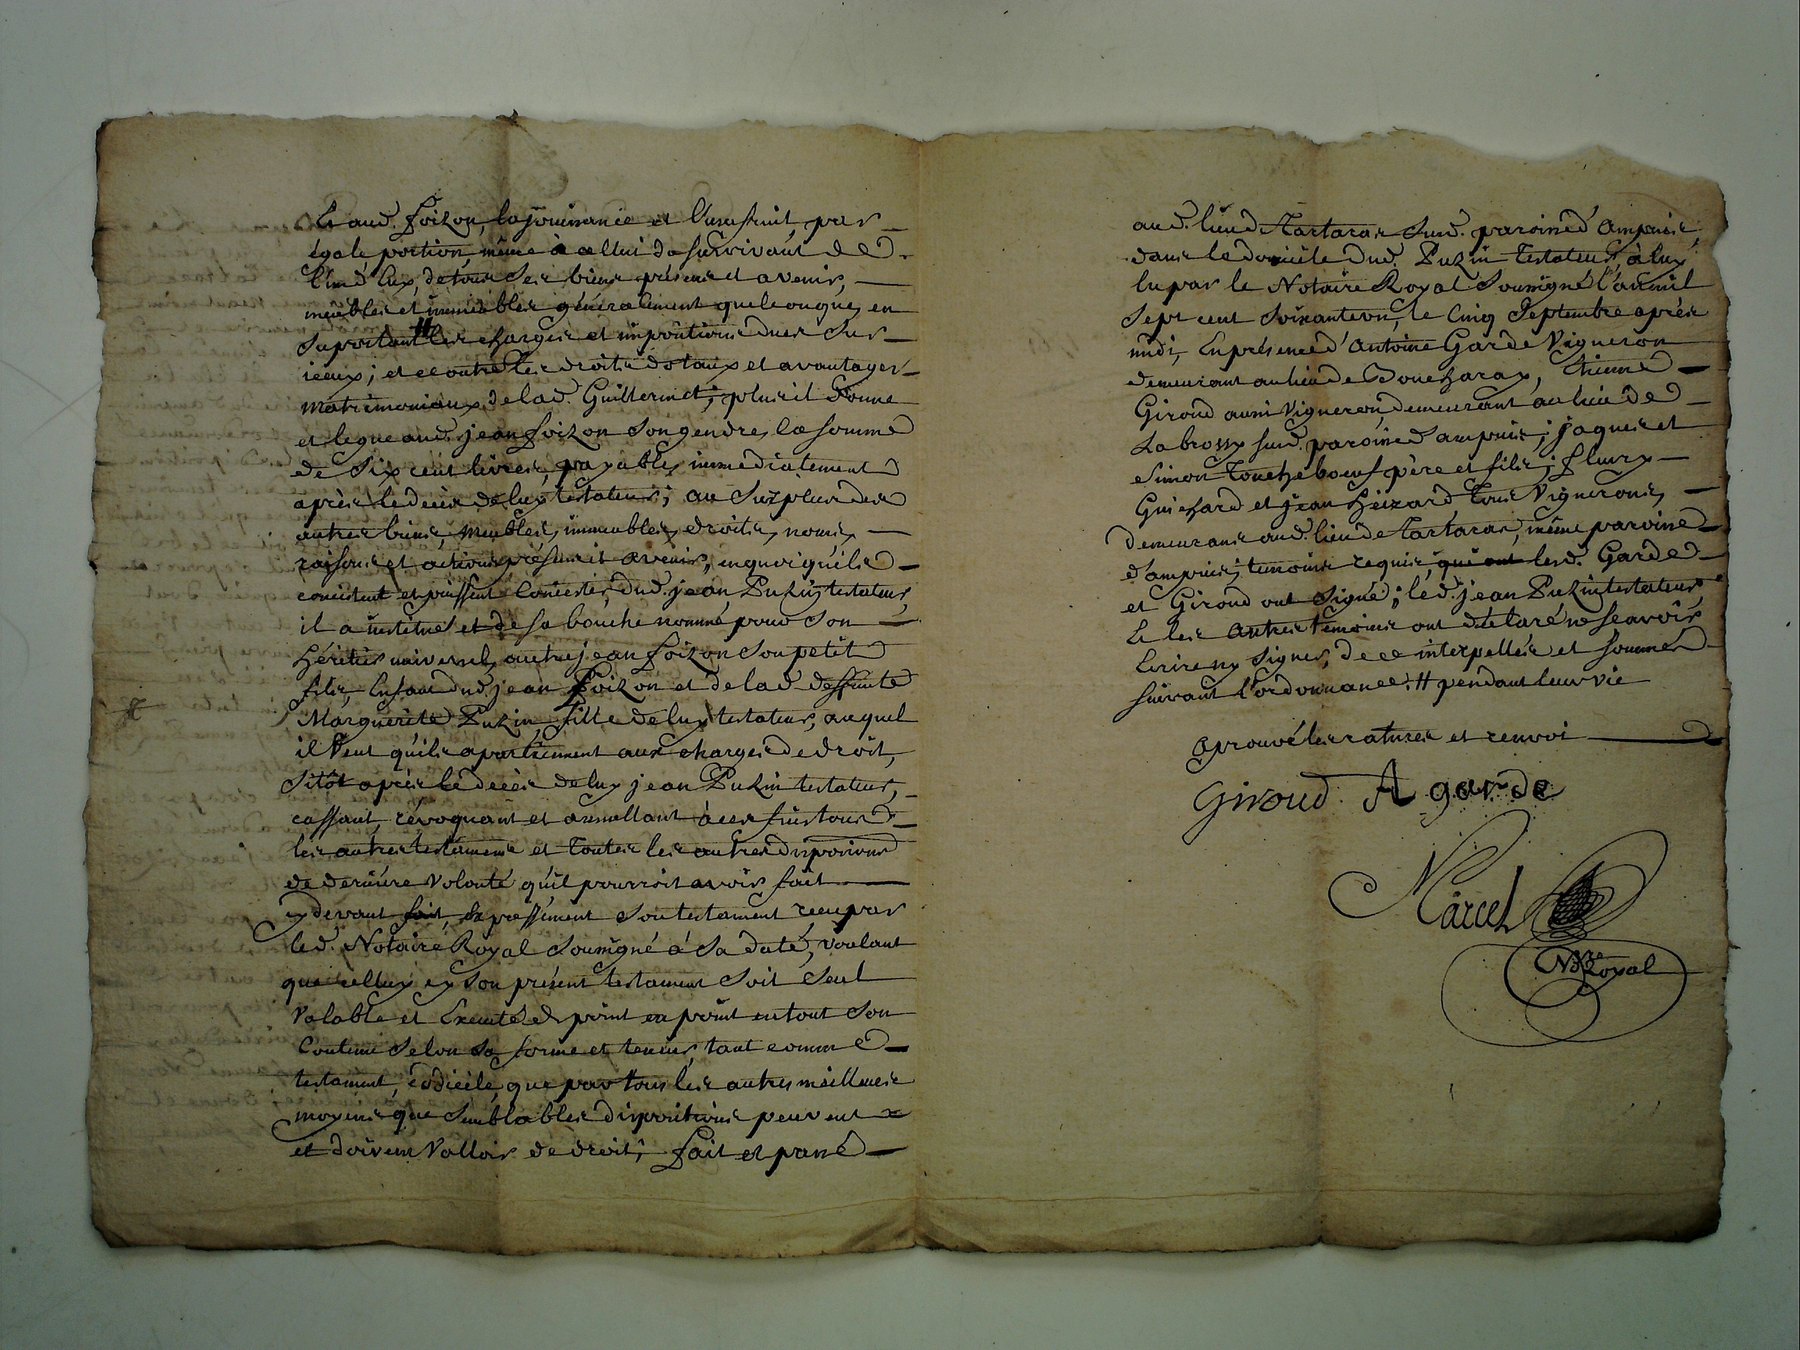 Et aud. foizon, la jouissance et l'usufruit, par
égale portion, même à celluï du survivant de
l'un d'eux, de tous ses biens présens et avenir,
meubles et immeubles généralement quelconques, en
suportant # les charges et impositions dues sur
iceux; et ce outre les droits dotaux et avantages
matrimoniaux de lad. Guillerinet; plus il donne
et legue aud. jean foizon son gendre, la somme
de six cent livres, payable immediatement
après le decès de luy testateur; au surplus des
autres biens, meubles, immeubles, droits, noms,
raisons et actions présens et avenir, en quoi qu'ils
consistent et puissent consister, dud. jean Puzin testateur,
il a institué et de sa bouche nommé pour son
héritier universel, autre jean foizon son petit
fils, Enfant dud. jean foizon et de lad. deffunte
Marguerite Puzin, fille de luy testateur, auquel
il veut qu'ils apartiennent aux charges de droit,
sitôt après le decès de luy jean Puzin testateur,
cassant, révoquant et annullant à ces fins tous
les autres testamens et toutes les autres disposions
de dernière volonté qu'il pourroit avoir fait
cy devant fait, expressément son testament reçu par
led. Notaire Royal soussigné à sa date, voulant
que celluy cy son présent testament soit seul
valable et Executé de point en point en tout son
contenu selon sa forme et teneur, tant comme
testament, codicile, que par tous les autres meilleurs
moyens que semblables dispositions peuvent
et doivent valloir de droit; fait et passé
aud. lieu de Tartaras sud. paroisse d'ampuis,
dans le domicile dud. Puzin testateur, à luy
lu par le Notaire Royal soussigné l'an mil
sept cent soixante un, le cinq Septembre après
midi, En présence d'antoine Garde Vigneron
demeurant au lieu de Boucharay, Etienne
Giroud aussi Vigneron, demeurant au lieu de
Labrossy sud. paroisse d'ampuis; jaques et
Simon Toucheboeuf père et fils; fleury
Guichard et jean heizard tous Vignerons,
demeurans aud. lieu de Tartaras, même paroisse
d'ampuis, temoins requis, qui ont led. Garde
et Giroud ont signé; led. jean Puzin testateur,
Et les autres temoins ont déclaré ne scavoir
Ecrire ny signer, de ce interpellés et sommés
suivant l'ordonnance. # pendant leur vie
aprouvé les ratures et renvoi
Giroud A garde
Marcel
Nre Royal